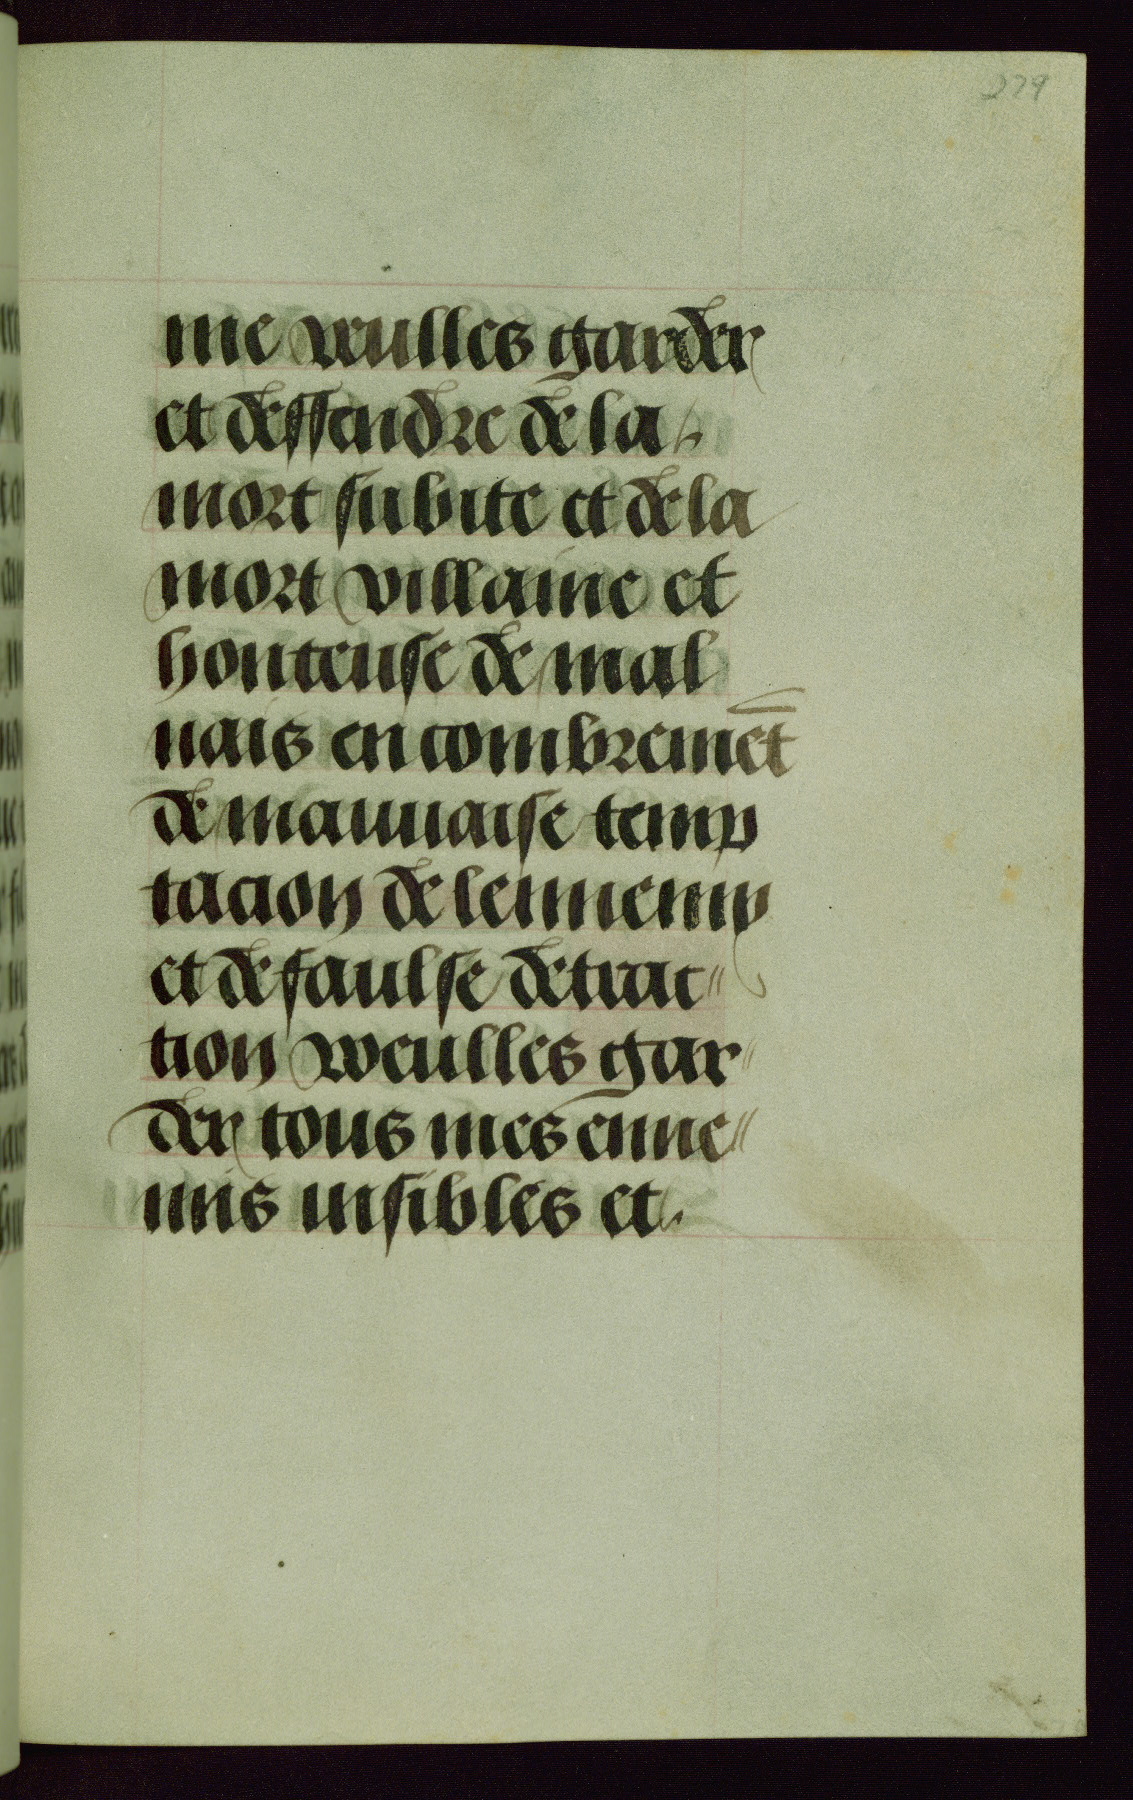 279
me veulles garder
et deffendre de la
mort subite et de la
mort villaine et
honteuse de mal
uais encombremēt
de mauuaise temp
tacion de lennemy
et de faulse detrac
tion veulles gar
der tous mes enne
mis uisibles et